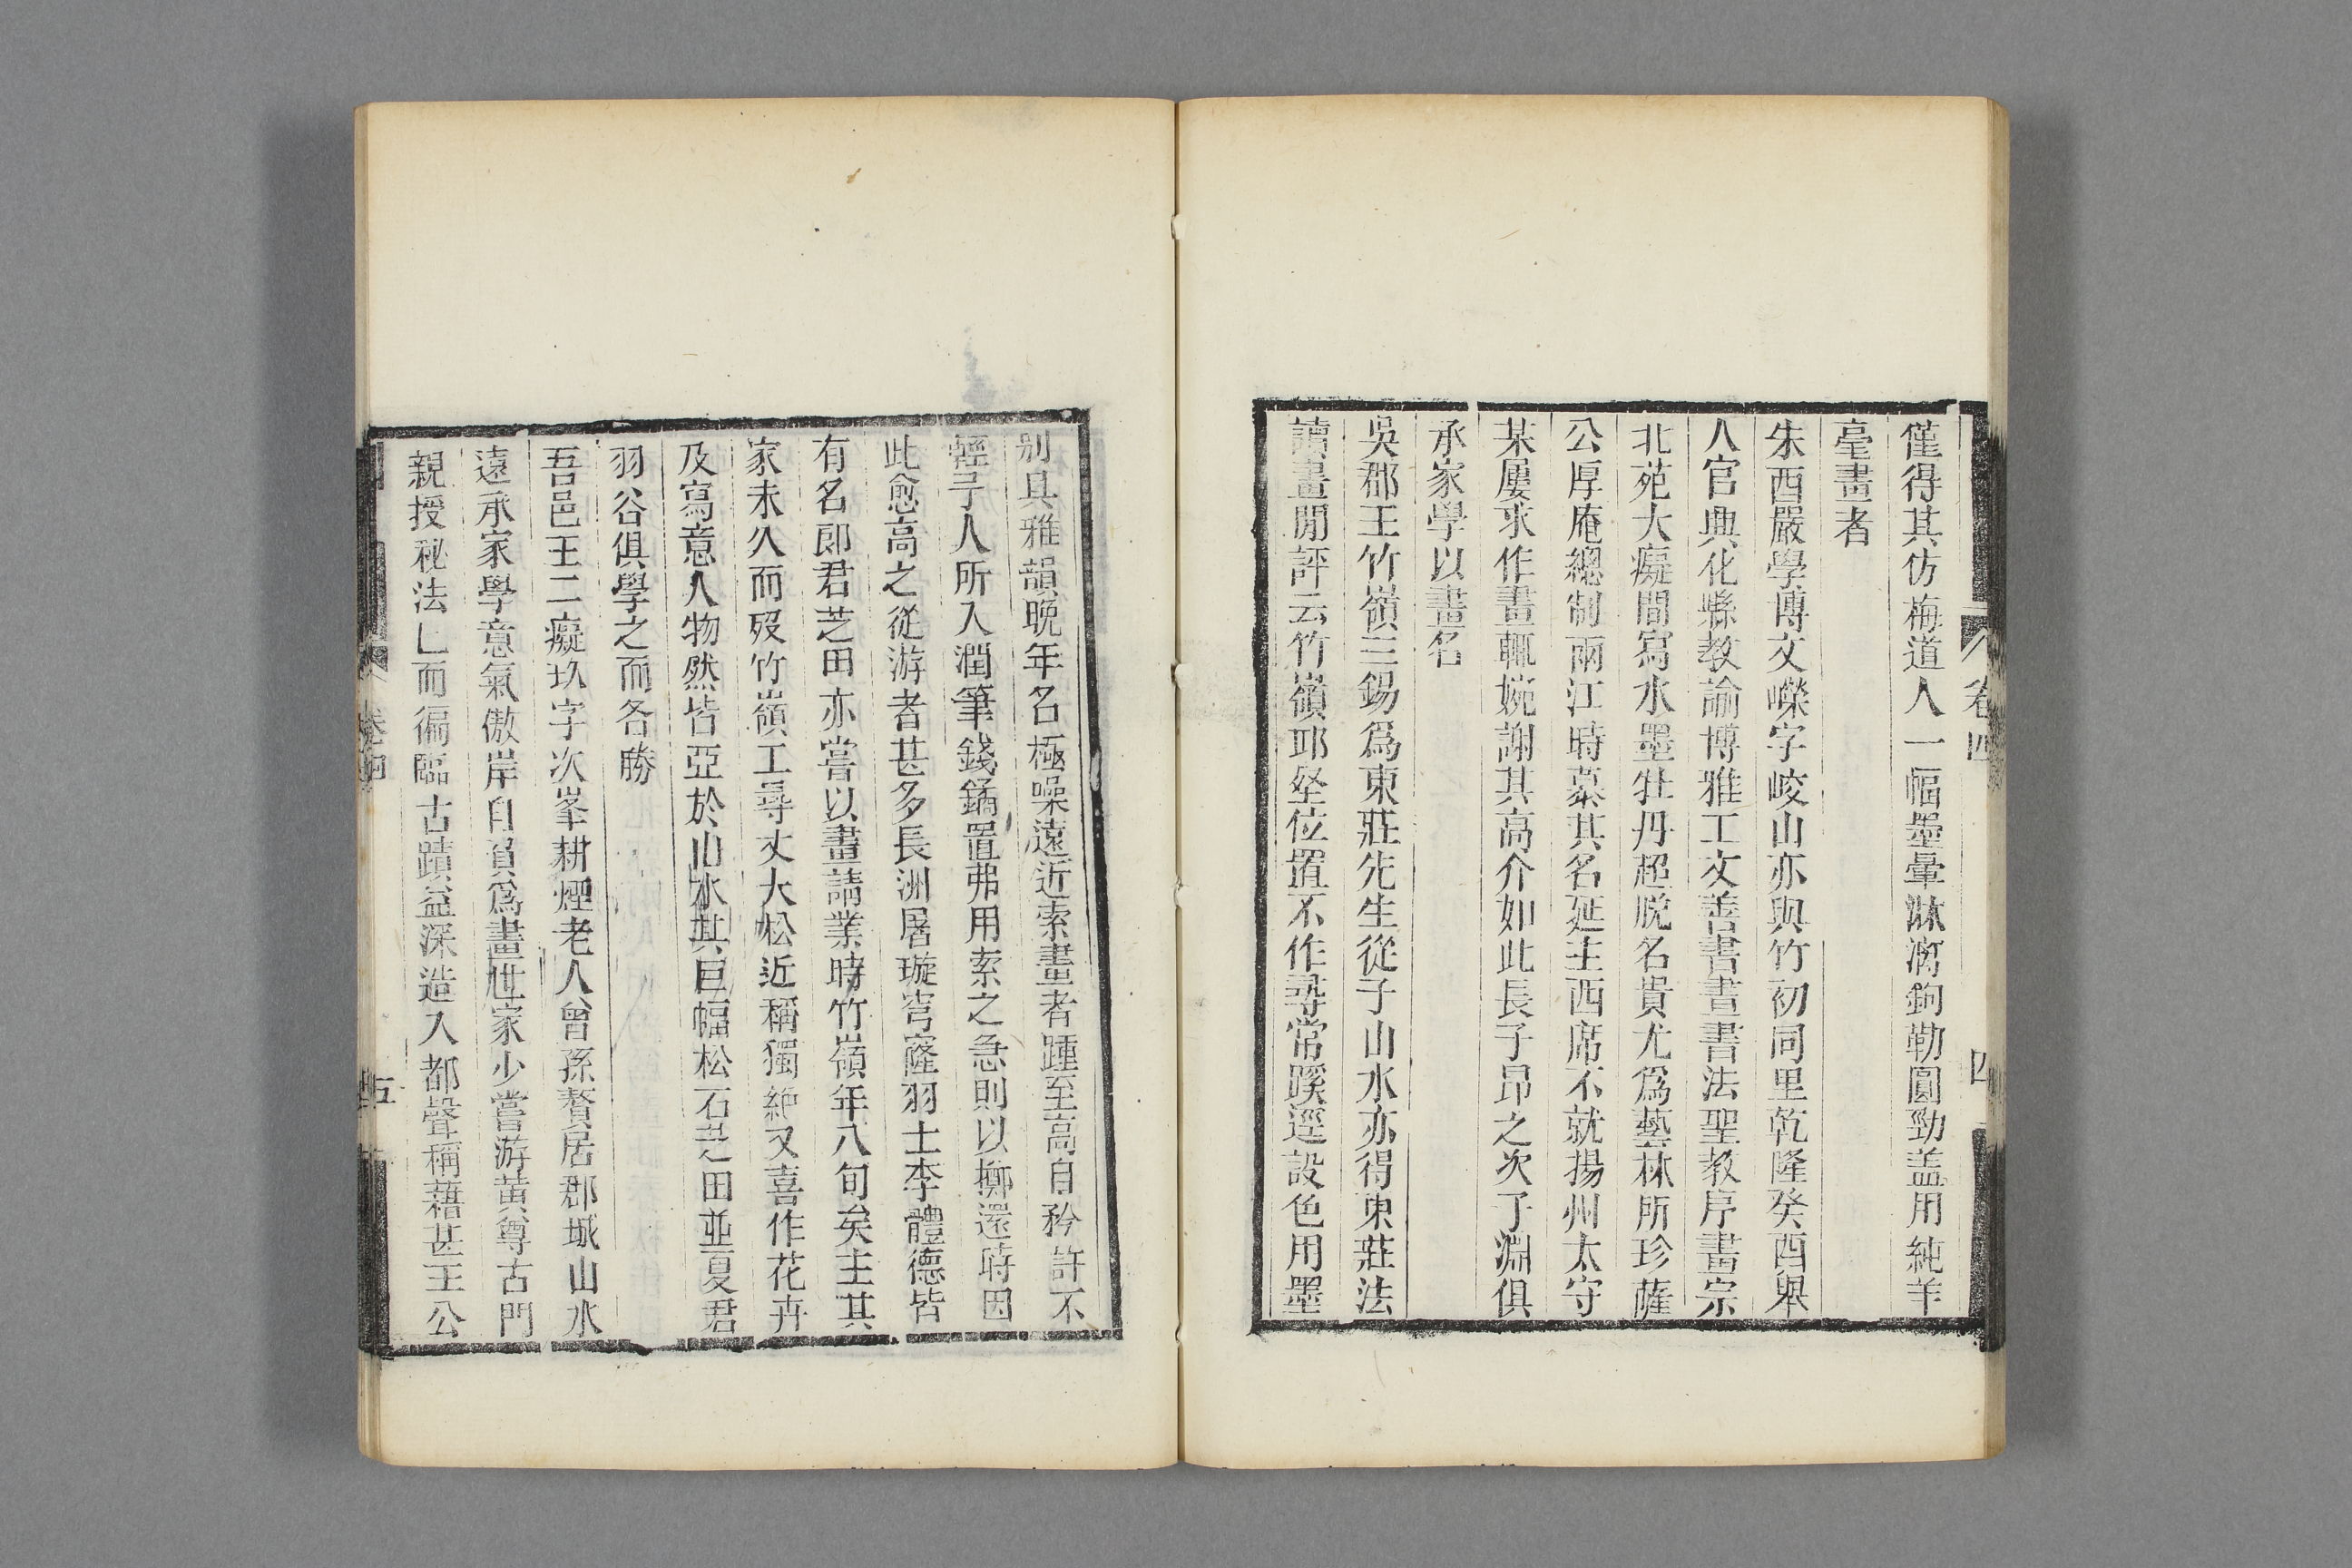 僅得其仿梅道人一幅墨暈淋漓鉤勒圓勁盖用純羊
毫畫者
朱酉嚴學博文嶸字峧山亦與竹初同里乾隆癸酉舉
人官典化縣教諭博雅工文善書畫書法聖教序畫宗
北苑大癡間寫水墨牡丹超脫名貴尤爲藝林所珍薩
公厚庵總制兩江時慕其名延主西席不就揚州太守
某屢求作畫輒婉謝其高介如此長子昂之次子淵俱
承家學以畫名
吳郡王竹嶺三錫爲東莊先生從子山水亦得東莊法
讀畫閒評云竹嶺邱壑位置不作尋常蹊逕設色用墨
卷四
四
別具雅韻晚年名極噪遠近索畫者踵至高自矜許不
輕予人所入潤筆錢鐍置弗用索之急則以擲還時因
此愈高之從游者甚多長洲屠璇穹窿羽士李體德皆
有名郎君芝田亦嘗以畫請業時竹嶺年八旬矣主其
家未久而歿竹嶺工尋丈大松近稱獨絶又喜作花卉
及寫意人物然皆亞於山水其巨幅松石芝田並夏君
羽谷俱學之而各勝
吾邑王二癡玖字次峯耕煙老人曾孫贅居郡城山水
遠承家學意氣傲岸自負爲畫世家少嘗游黄尊古門
親授秘法
而徧臨古蹟益深造入都聲稱藉甚王公
卷四
五